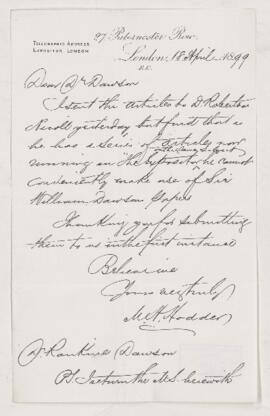 27 Paternoster Row,
TELEGRAPHIC ADDRESS
EXPOSITOR LONDON
London, 18 April 1899
E.C.
Dear Dr Dawson
I sent the articles to Dr Robertson
Nicoll yesterday but find that as
he has a series of articles now
running in the Expositor he cannot
conveniently make use of Sir
William Dawson Papers
Thanking you for submitting
them to us in the first instance
Believe me
Yours very truly
M H Hodder
Dr Rankine Dawson
PS. I return the MS. herewith